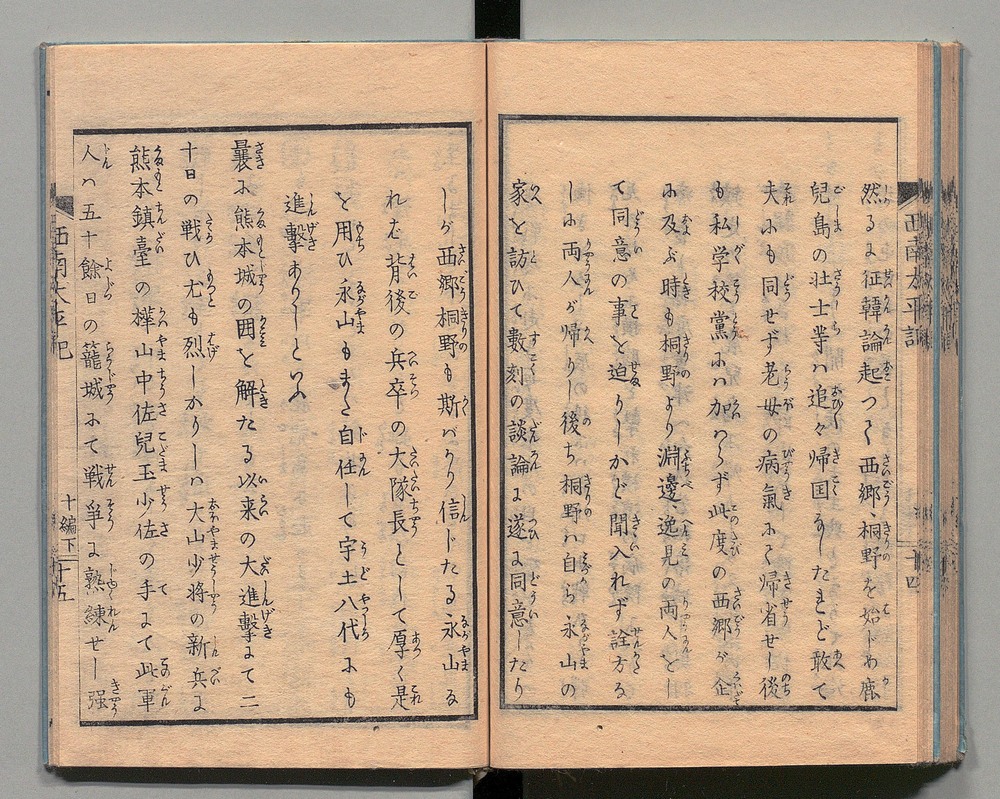 然るに征韓論起つて西郷桐野を始じめ鹿
児島の壮士等ハ追々帰国なしたれど敢て
夫にも同せず老母の病氣にて帰省せし後
も私学校黨にハ加ハらず此度の西郷が企
に及ぶ時も桐野より淵邊逸見の両人をし
て同意の事を迫りしかど聞入れず詮方な
しに両人が帰りし後ち桐野ハ自ら永山の
家を訪ひて數刻の談論に遂に同意したり
しが西郷桐野も斯バかり信じたる永山な
れバ背後の兵卒の大隊長として厚く是
を用ひ永山もまた自任して宇土八代にも
進撃ありしといふ
曩に熊本城の囲を解たる以来の大進撃にて二
十日の戦ひ尤も烈しかりしハ大山少将の新兵に
熊本鎮臺の樺山中佐兒玉少佐の手にて此軍
人ハ五十餘日の籠城にて戦爭に熟練せし强
西南太平記
十編下 十五